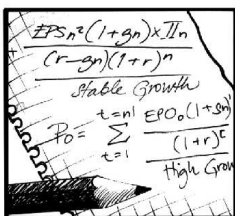 EPSn²(1+gn)×Πn
(r-gn)(1+r)ⁿ
Stable Growth
P₀= Σ t=n¹ t=1 EPO₀(1+gn)ᵗ
(1+r)ᵗ
High Grow